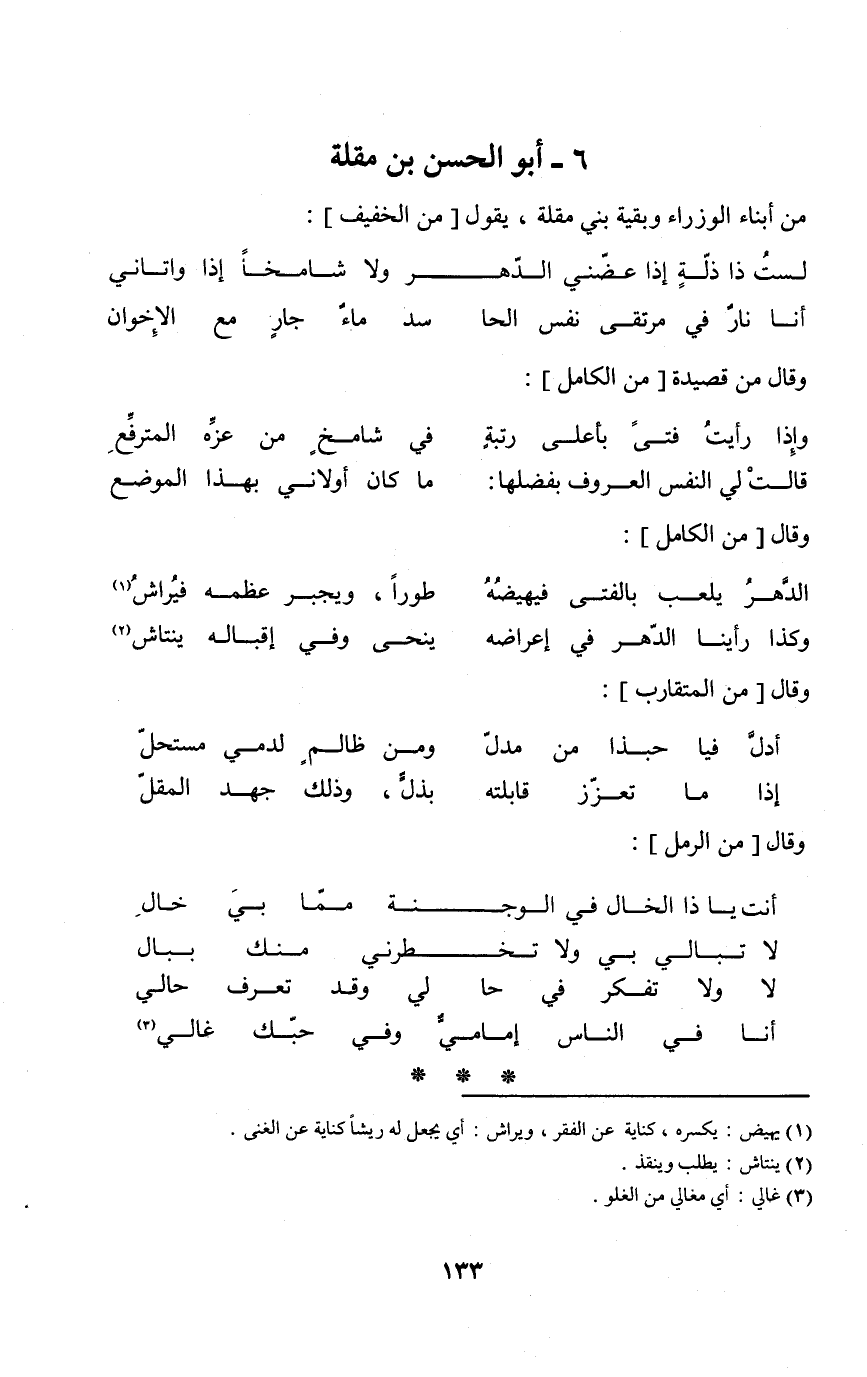 ٦ ـ أبو الحسن بن مقلة
من أبناء الوزراء وبقية بني مقلة ، يقول [ من الخفيف ] :
لستُ ذا ذلّةٍ إذا عضّني الدّهـر ولا شامخاً إذا واتاني
أنا نارٌ في مرتقى نفس الحا سد ماءٌ جارٍ مع الإخوان
وقال من قصيدة [ من الكامل ] :
وإذا رأيتُ فتىً بأعلى رتبةٍ في شامخٍ من عزِّه المترفِّعِ
قالتْ لي النفس العروف بفضلها: ما كان أولاني بهذا الموضع
وقال [ من الكامل ] :
الدَّهرُ يلعب بالفتى فيهيضُهُ طوراً ، ويجبر عظمه فيُراشُ(١)
وكذا رأينا الدّهر في إعراضه ينحى وفي إقباله ينتاش(٢)
وقال [ من المتقارب ] :
أدلَّ فيا حبذا من مدلّ ومن ظالمٍ لدمي مستحلّ
إذا ما تعزّز قابلته بذلٍّ ، وذلك جهد المقلّ
وقال [ من الرمل ] :
أنت يا ذا الخال في الوجـنة ممّا بيَ خالِ
لا تبالي بي ولا تخـطرني منك ببال
لا ولا تفكر في حا لي وقد تعرف حالي
أنا في الناس إماميٌّ وفي حبّك غالي(٣)
* * *
(١) يهيض : يكسره ، كناية عن الفقر ، ويراش : أي يجعل له ريشاً كناية عن الغنى .
(٢) ينتاش : يطلب وينقذ .
(٣) غالي : أي مغالي من الغلو .
١٣٣